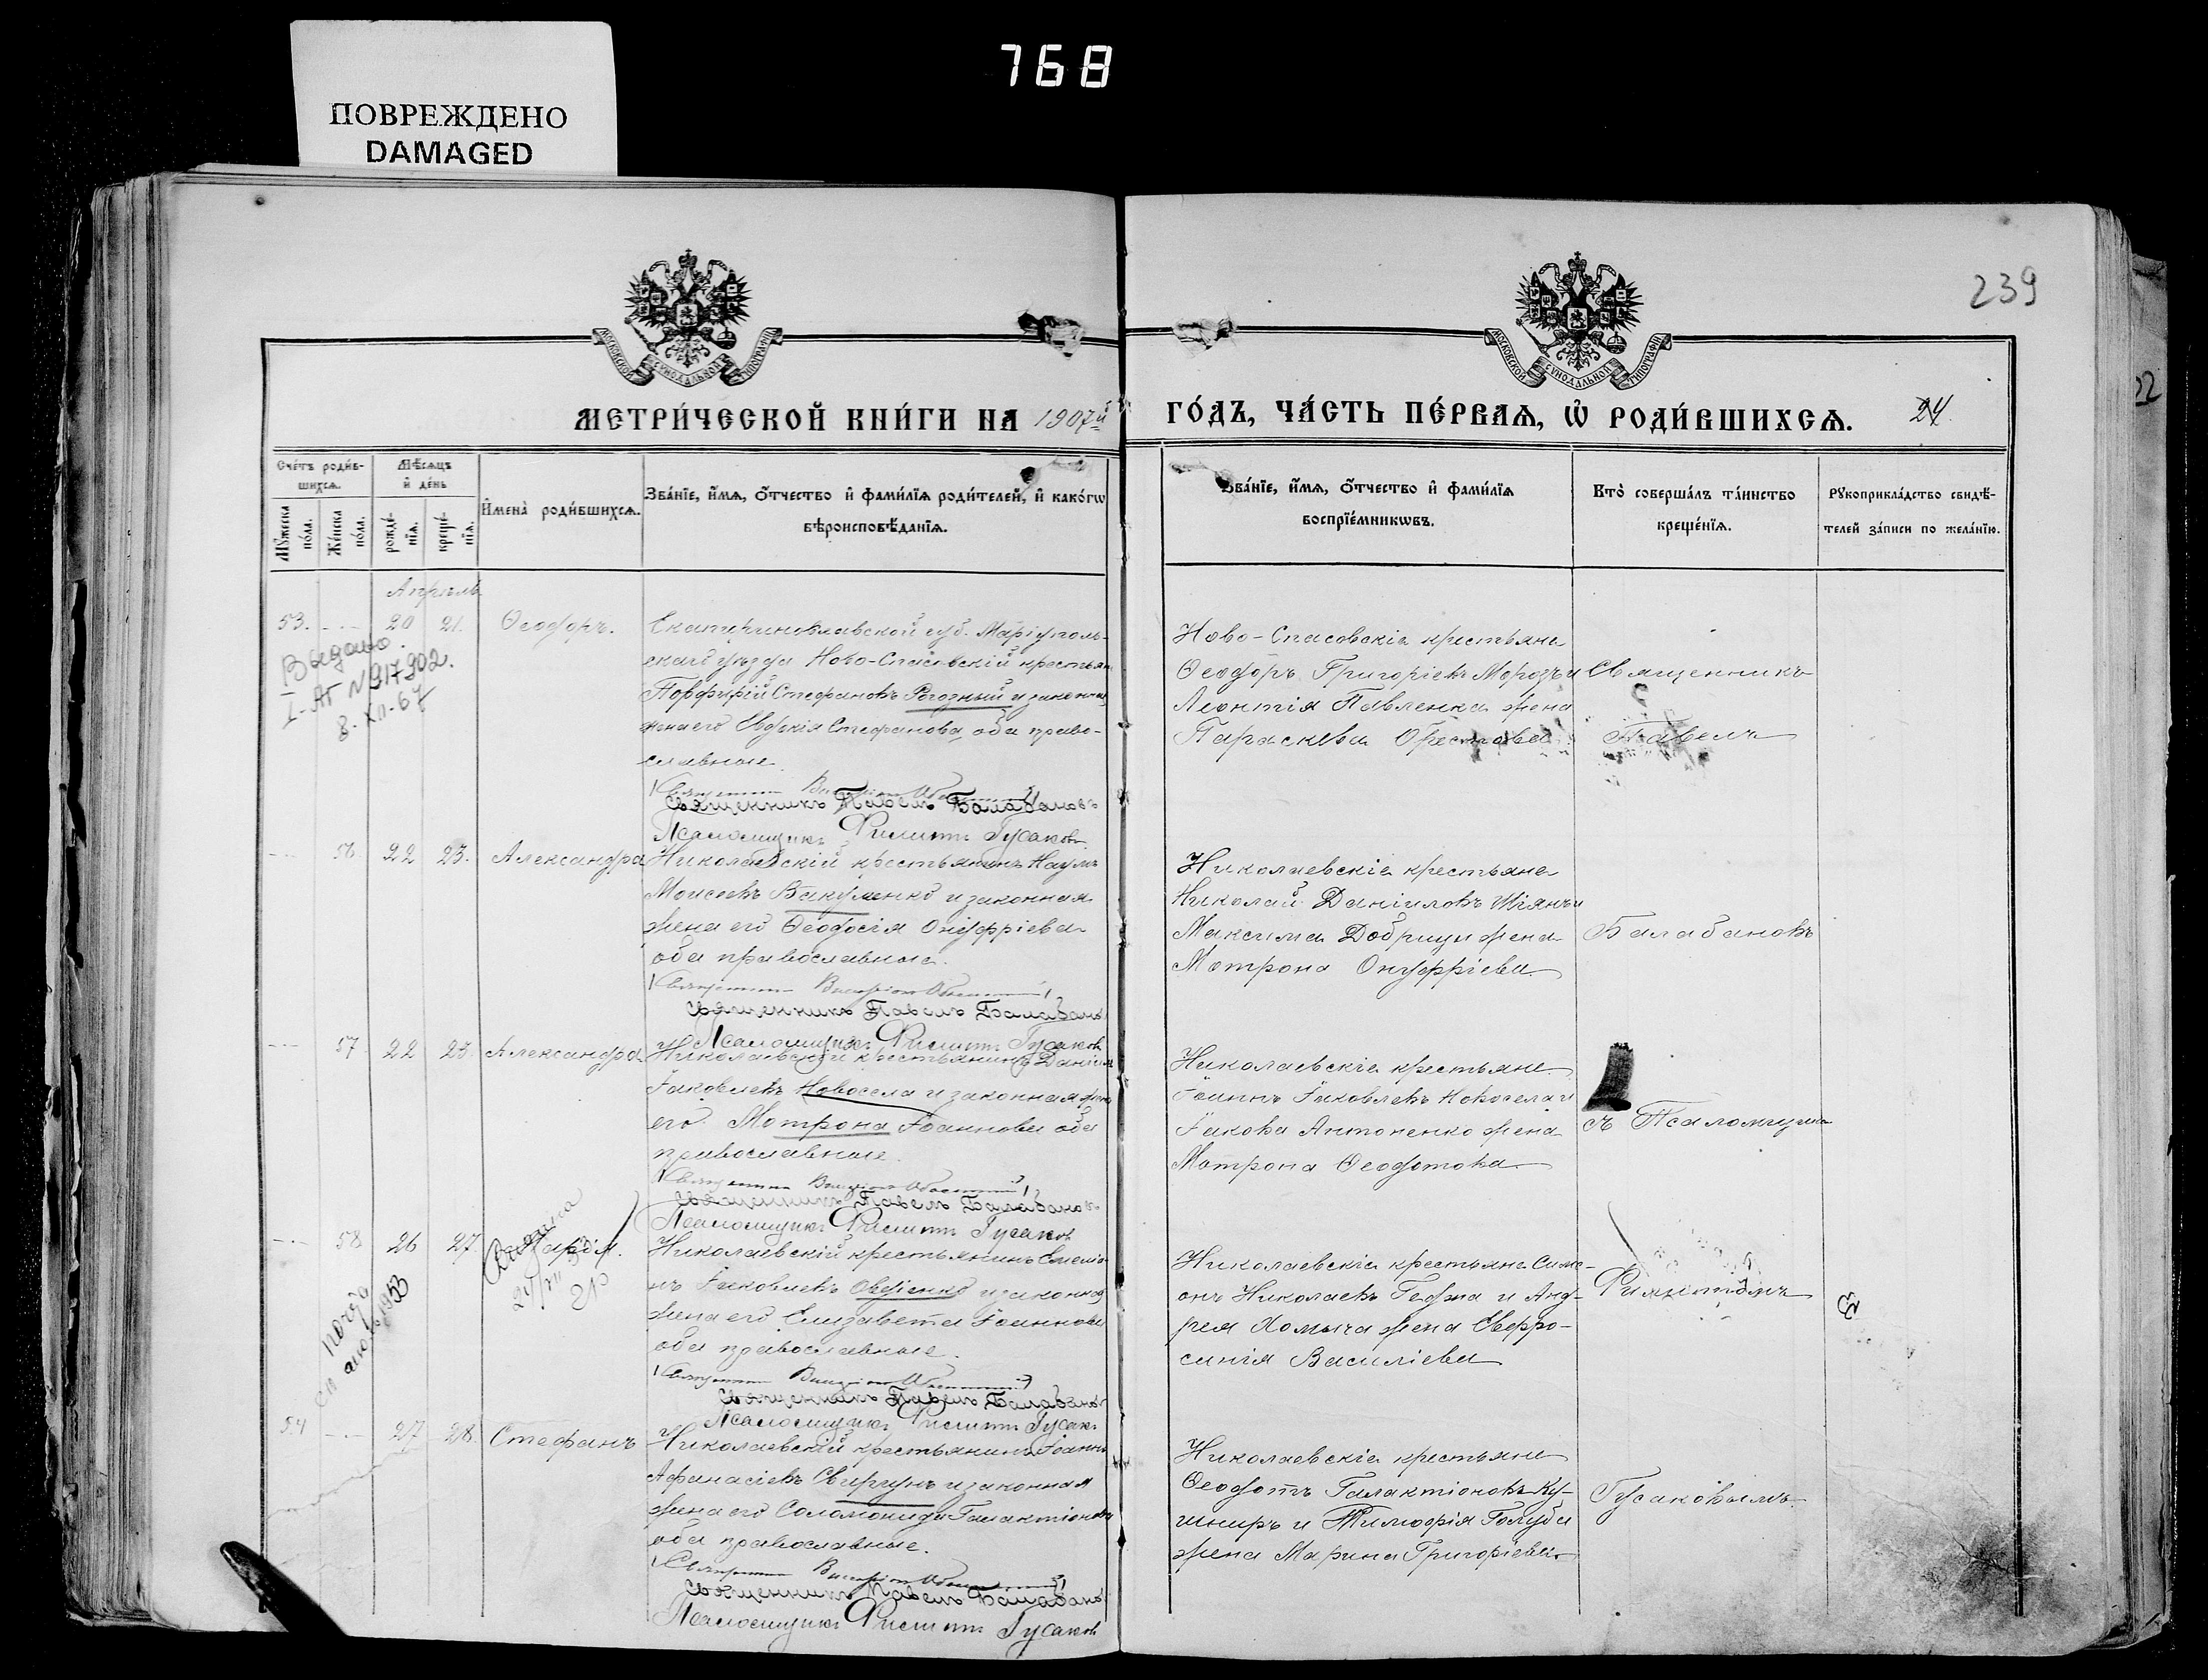 768
ПОВРЕЖДЕНО
DAMAGED
239
22
МОСКОВСКОЙ СѴНОДАЛЬНОЙ ТИПОГРАФІИ
МОСКОВСКОЙ СѴНОДАЛЬНОЙ ТИПОГРАФІИ
МЕТРИ́ЧЕСКОЙ КНИ́ГИ НА 1907й
ГО́ДЪ, ЧА́СТЬ ПЕ́РВАѦ, Ѡ҆ РОДИ́ВШИХСѦ. 24.
Сче́тъ роди́в-
шихсѧ.
Мꙋ́жеска по́ла.
Же́нска по́ла.
Мѣ́сѧцъ
и҆ де́нь
рожде́-нїѧ.
креще́-нїѧ.
И҆мена̀ роди́вшихсѧ.
Зва́нїе, и҆́мѧ, ѻ҆́тчество и҆ фами́лїѧ роди́телей, и҆ како́гѡ
вѣроисповѣ́данїѧ.
Зва́нїе, и҆́мѧ, ѻ҆́тчество и҆ фами́лїѧ
воспрїе́мникѡвъ.
Кто̀ соверша́лъ та́инство
креще́нїѧ.
Рꙋкоприкла́дство свидѣ́-
телей за́писи по жела́нїю.
Апрѣль
53. 20 21. Ѳеодоръ.
Екатеринославской губ. Маріуполь-
скаго уѣзда Ново-Спасовскій крестьян.
Порфирій Стефановъ Рогозный и законная
жена его Евдокія Стефанова, оба право-
славные.
Священникъ Павелъ Балабановъ
Псаломщикъ Филиппъ Гусаковъ
Ново-Спасовскіе крестьяне
Ѳеодоръ Григоріевъ Морозъ и
Леонтія Павленка жена
Параскева Орестова
Священникъ
Павелъ
Выдано
I-АГ №917902.
8.XII-67
56 22 23. Александра
Николаевскій крестьянинъ Наумъ
Моисеевъ Бакуменко и законная
жена его Ѳеодосія Онуфріева
оба православные.
Священникъ Павелъ Балабанов
Псаломщикъ Филиппъ Гусаков
Николаевскіе крестьяне
Николай Даніиловъ Шіянъ и
Максима Добрици жена
Мотрона Онуфріева
Балабановъ
57 22 23. Александра
Николаевскій крестьянинъ Даніилъ
Іаковлевъ Новосела и законная жена
его Мотрона Іоаннова оба
православные.
Священникъ Павелъ Балабановъ
Псаломщикъ Филиппъ Гусаков
Николаевскіе крестьяне
Іоаннъ Іаковлевъ Новосела и
Іакова Антоненко жена
Мотрона Ѳеодотова
съ Псаломщико
58 26 27. Марія.
Николаевскій крестьянинъ Емелiа-
нъ Іаковлевъ Овдіенко и законная
жена его Елизавета Іоаннова
оба православные.
Священникъ Павелъ Балабанов
Псаломщикъ Филиппъ Гусаков
Николаевскіе крестьяне Симе-
онъ Николаевъ Геджа и Анд-
рея Хомыча жена Евфро-
синія Василіева
Филиппомъ
54 27 28. Стефанъ
Николаевскій крестьянинъ Іоаннъ
Афанасіевъ Свиргунъ и законная
жена его Соломонида Галактіонова
оба православные.
Священникъ Павелъ Балабанов
Псаломщикъ Филиппъ Гусаков
Николаевскіе крестьяне
Ѳеодотъ Галактіоновъ Ку-
шниръ и Тимофія Голуба
жена Марина Григоріева
Гусаковымъ